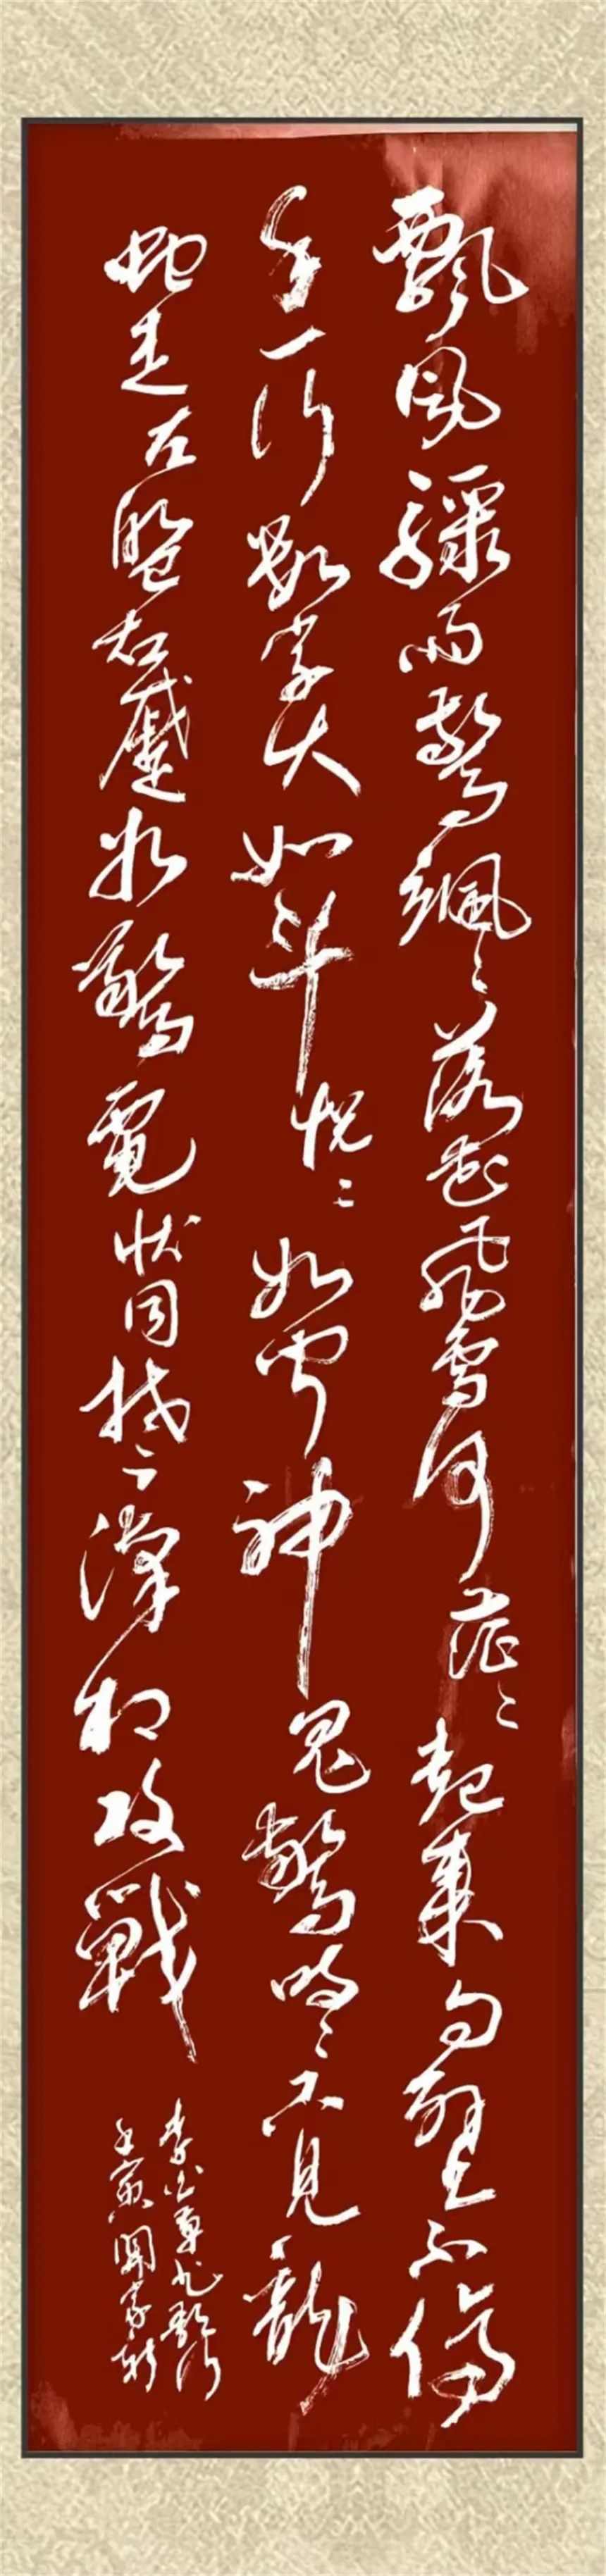 飄風驟雨驚颯〻落花飛雪何茫〻起來向壁不停
手一行數字大如斗恍〻如聞神鬼驚時〻只見龍
蛇走左盤右蹙如驚電狀同楚漢相攻戰
李白草书歌行
壬寅